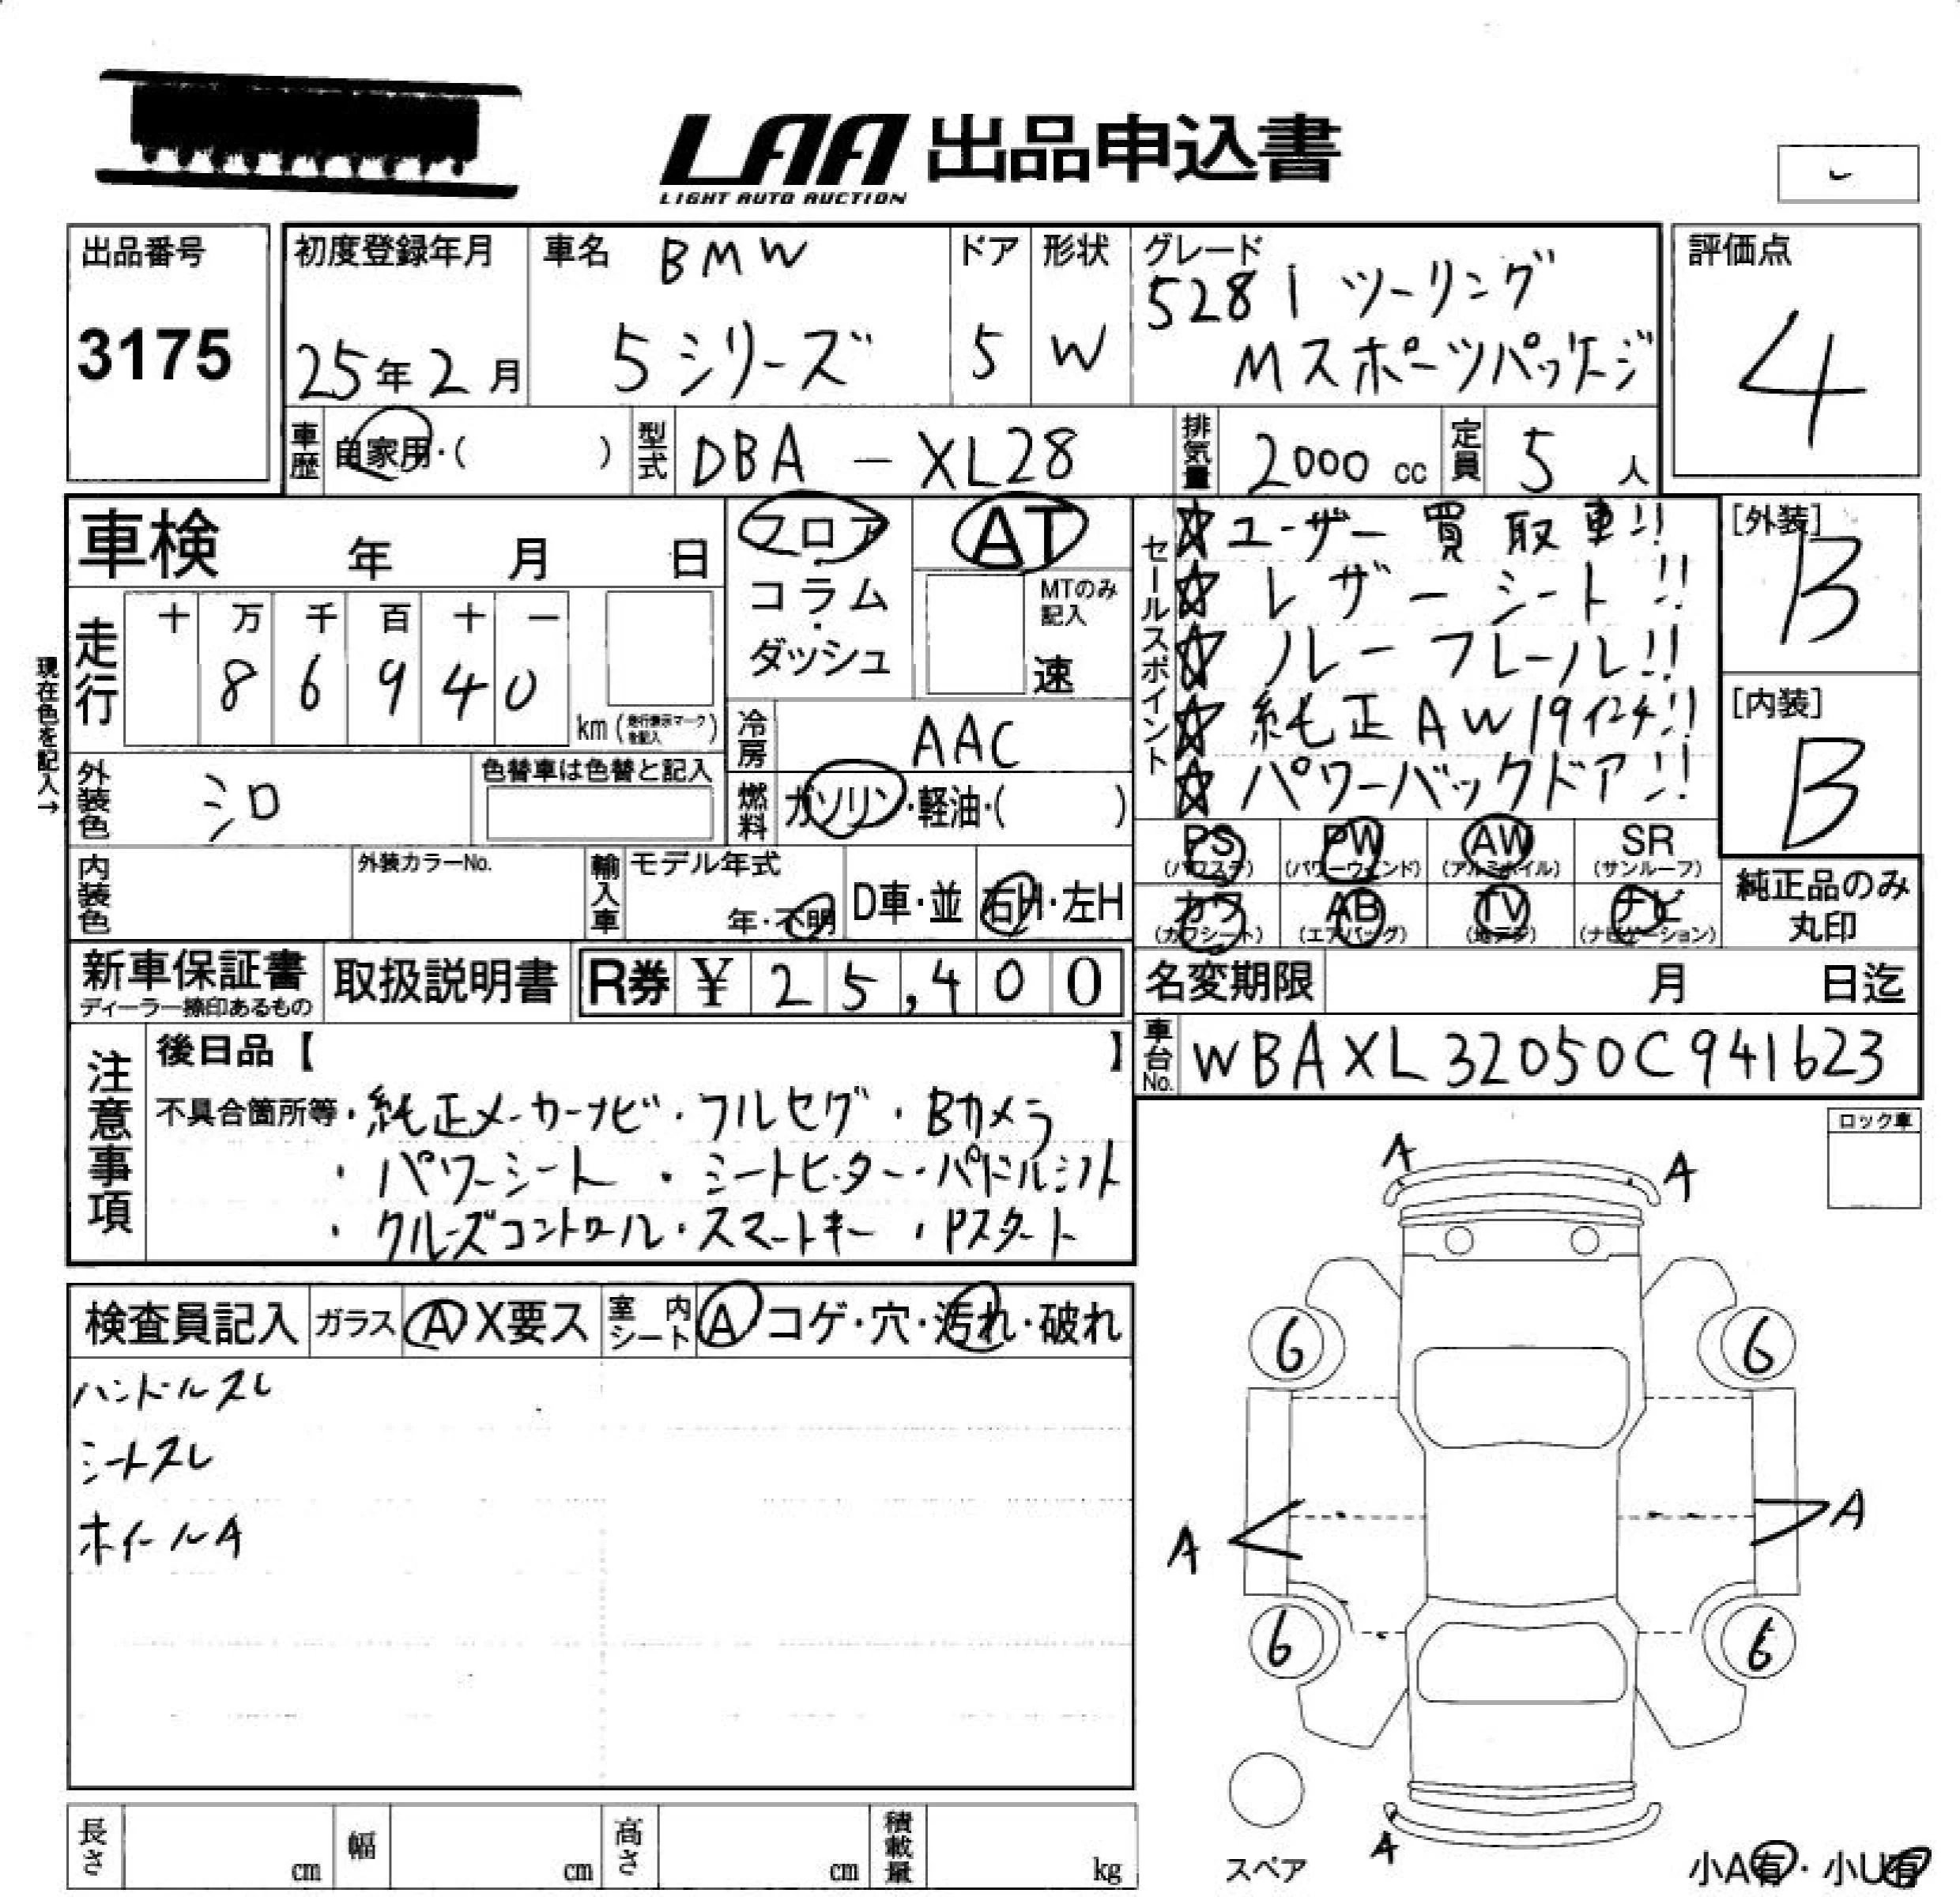 LAA 出品申込書
LIGHT AUTO AUCTION
出品番号
3175
初度登録年月
25年2月
車名 BMW
5シリーズ
ドア
5
形状
W
グレード
528i ツーリング
Mスポーツパッケージ
評価点
4
車歴 自家用・( )
型式 DBA - XL28
排気量 2000 cc
定員 5 人
車検 年 月 日
フロア
・
コラム
・
ダッシュ
AT
MTのみ
記入
速
セールスポイント
☆ユーザー買取車!!
☆レザーシート!!
☆ルーフレール!!
☆純正AW19インチ!!
☆パワーバックドア!!
[外装]
B
[内装]
B
現在色を記入→
走行
十 万 千 百 十 一
8 6 9 4 0
km (走行表示マークを記入)
冷房 AAC
燃料 ガソリン・軽油・( )
外装色 シロ
色替車は色替と記入
内装色
外装カラーNo.
輸入車
モデル年式
年・不明
D車・並
右H・左H
PS
(パワステ)
PW
(パワーウインド)
AW
(アルミホイル)
SR
(サンルーフ)
カワ
(カワシート)
AB
(エアバッグ)
TV
(地デジ)
ナビ
(ナビゲーション)
純正品のみ
丸印
新車保証書
ディーラー捺印あるもの
取扱説明書
R券 ¥ 25,400
名変期限 月 日迄
車台No. WBAXL32050C941623
注意事項
後日品【 】
不具合箇所等・純正メーカーナビ・フルセグ・Bカメラ
・パワーシート ・シートヒーター・パドルシフト
・クルーズコントロール・スマートキー ・Pスタート
ロック車
検査員記入
ガラス A X要ス
室内シート A コゲ・穴・汚れ・破れ
ハンドルスレ
シートスレ
ホイールA
A
A
6
6
A
A
6
6
A
スペア
小A有・小U有
長さ cm
幅 cm
高さ cm
積載量 kg